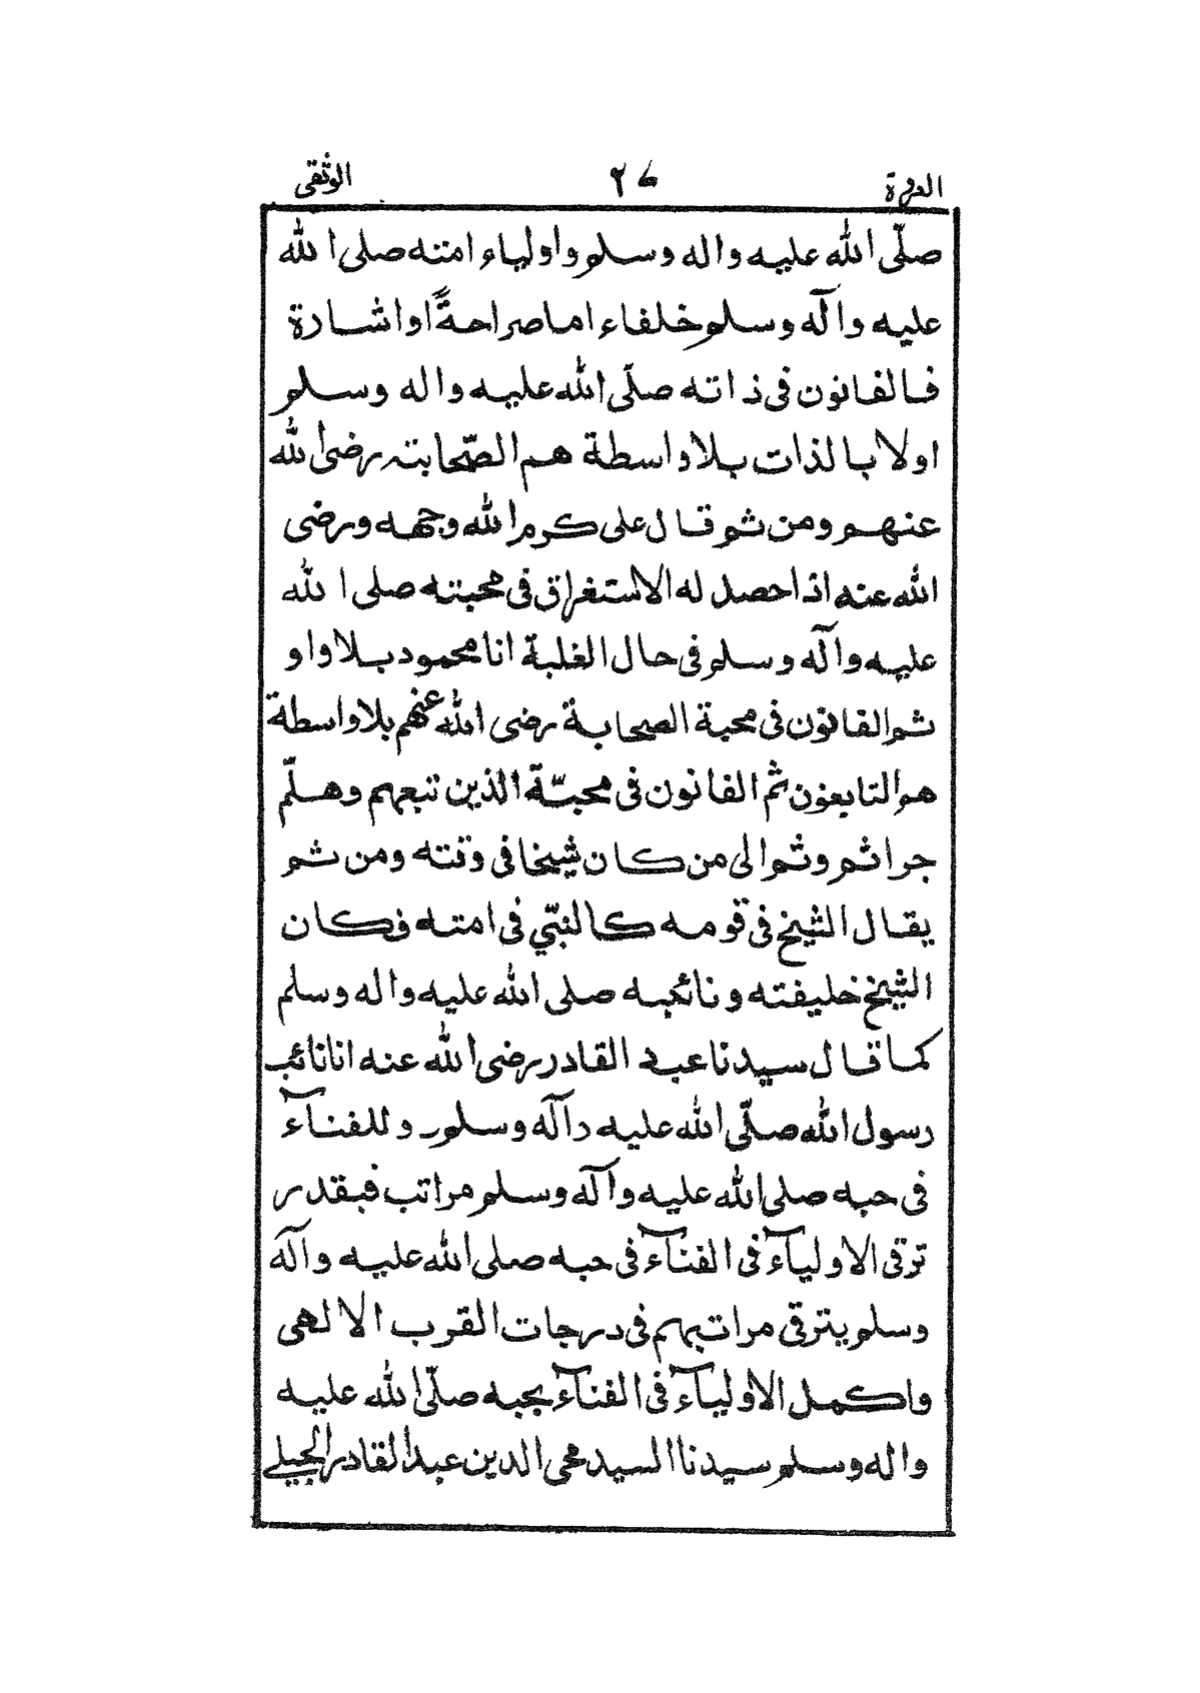 العروة ٢٧ الوثقى
صلّى الله عليه واله وسلم واولياء امته صلى الله
عليه وآله وسلم خلفاء اما صراحةً او اشارة
فالفانون فى ذاته صلّى الله عليه واله وسلم
اولا بالذات بلا واسطة هم الصّحابته رضى الله
عنهم ومن ثم قال على كرم الله وجهه ورضى
الله عنه اذا حصل له الاستغراق فى محبته صلى الله
عليه وآله وسلم فى حال الغلبة انا محمود بلا واو
ثم الفانون فى محبة الصحابة رضى الله عنهم بلا واسطة
هم التابعون ثم الفانون فى محبّة الذين تبعهم وهلّم
جرا ثم وثم الى من كان شيخا فى وقته ومن ثم
يقال الشيخ فى قومه كالنبّي فى امته فكان
الشيخ خليفته ونائبه صلى الله عليه واله وسلم
كما قال سيدنا عبد القادر رضى الله عنه انا نائب
رسول الله صلّى الله عليه وآله وسلم وللفنآء
فى حبه صلى الله عليه وآله وسلم مراتب فبقدر
ترقى الاوليآء فى الفنآء فى حبه صلى الله عليه وآله
وسلم يترقى مراتبهم فى درجات القرب الالهى
واكمل الاوليآء فى الفنآء بحبه صلّى الله عليه
واله وسلم سيدنا السيد محى الدين عبد القادر الجيلى